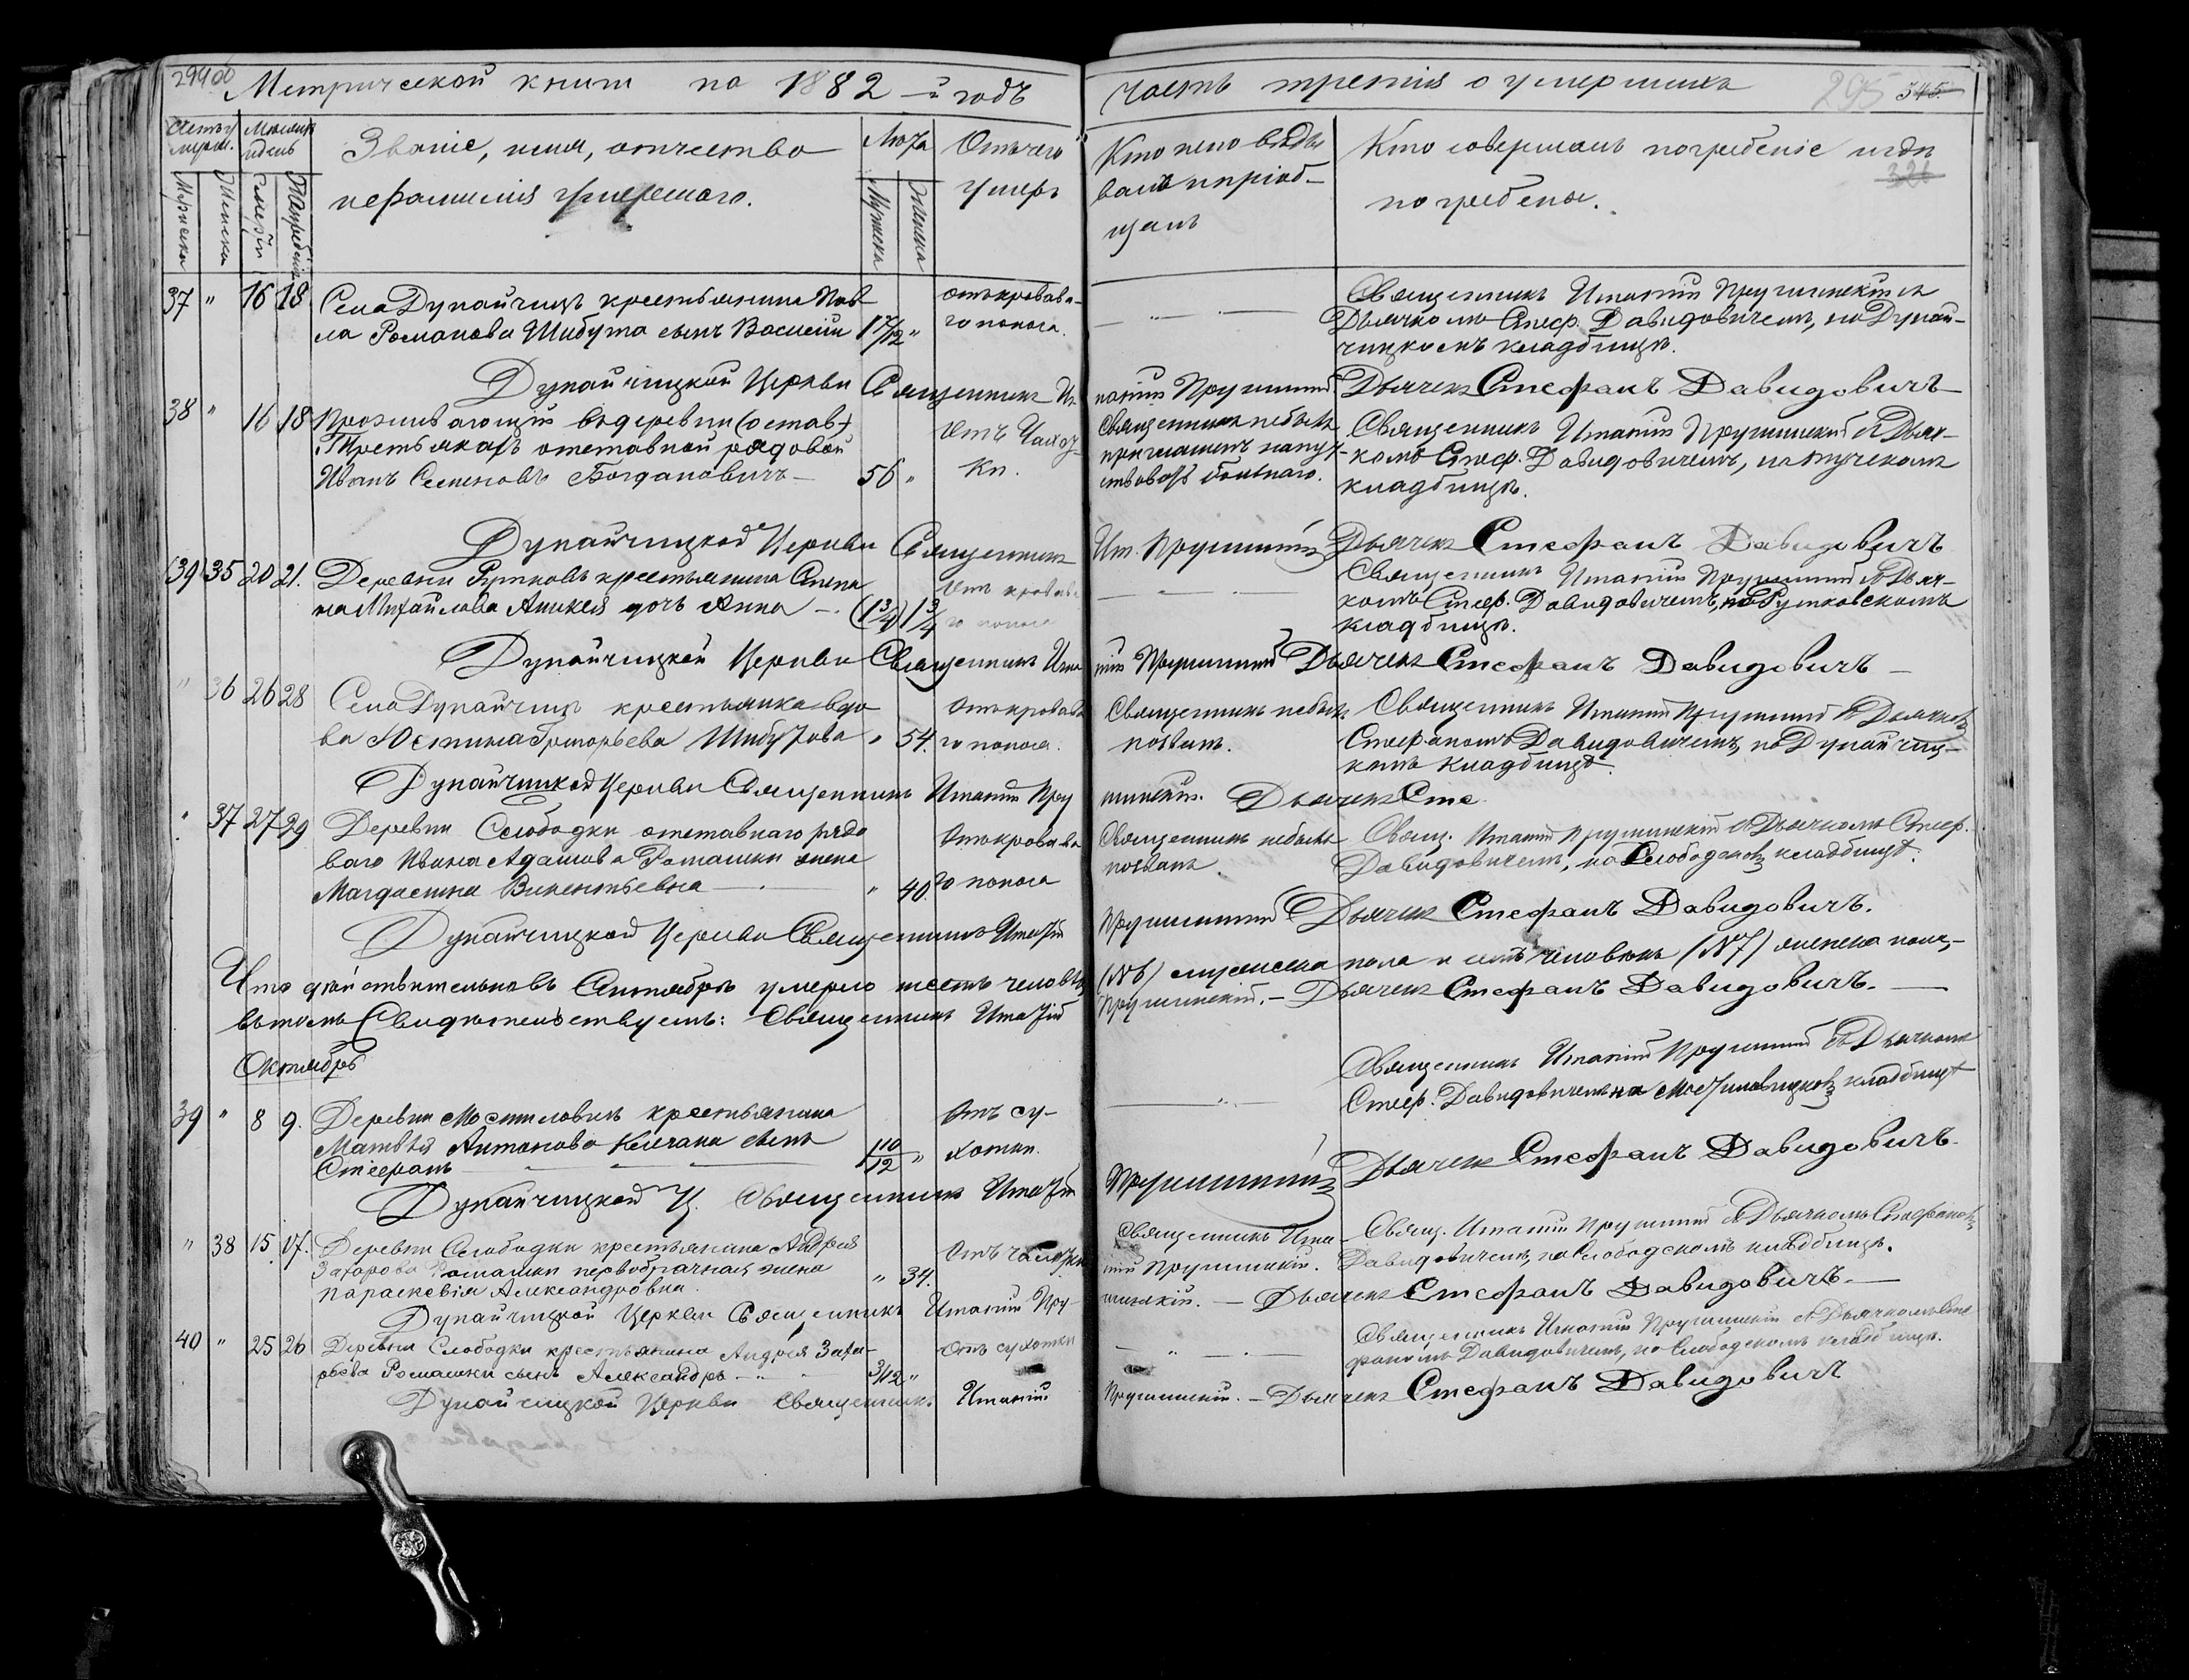 294об
Метрической книги на 1882-й годъ
часть третія о умершихъ
295 345.
326
Счетъ умерш.
Мужеска
Женска
Мѣсяцъ и день
Смерти
Погребенія
Званіе, имя, отчество
и фамилія умершаго.
Лѣта
Мужеска
Женска
Отъ чего
умеръ
Кто исповѣды
валъ и пріоб-
щалъ
Кто совершалъ погребеніе и гдѣ
погребены.
37 " 16 18 Села Дунайчицъ крестьянина Пав-
ла Романова Шибута сынъ Василій 1 7/12 "
отъ кроваво-
го поноса.
Священникъ Игнатій Прушинскій съ
Дьячкомъ Стеф. Давидовичемъ, на Дунай-
чицкомъ кладбищѣ.
Дунайчицкой Церкви Священникъ Иг
натій Прушинскій Дьячекъ Стефанъ Давидовичъ
38 " 16 18 Проживающій въ деревни (остав-)
Третьякахъ отставной рядовой
Иванъ Семеновъ Богдановичъ — 56 "
Отъ Чахот-
ки.
Священникъ небылъ
приглашенъ напут-
ствовать больнаго.
Священникъ Игнатій Прушинскій съ Дьяч-
комъ Стеф. Давидовичемъ, на
кладбищѣ.
Дунайчицкой Церкви Священникъ
Иг. Прушинскій Дьячекъ Стефанъ Давидовичъ
(39) 35 20 21. Деревни Рутковъ крестьянина Степа
на Михайлова Аникея дочь Анна —. (1 3/4) 1 3/4
Отъ кроваво
го поноса
Священникъ Игнатій Прушинскій съ Дьяч-
комъ Стеф. Давидовичемъ, на Рутковскомъ
кладбищѣ.
Дунайчицкой Церкви Священникъ Игна
тій Прушинскій Дьячекъ Стефанъ Давидовичъ —
" 36 26 28 Села Дунайчицъ крестьянка вдо
ва Юстина Григорьева Шибутова " 54.
Отъ кроваво
го поноса.
Священникъ небылъ
позванъ.
Священникъ Игнатій Прушинскій съ Дьячкомъ
Стефаномъ Давидовичемъ, на Дунайчиц-
комъ кладбищѣ.
Дунайчицкой Церкви Священникъ Игнатій Пру
шинскій. Дьячекъ Сте
" 37 27 29 Деревни Слободки отставнаго рядо
ваго Ивана Адамова Ромашки жена
Магдалина Викентьевна — " 40.
Отъ кроваво
го поноса
Священникъ небылъ
позванъ.
Свящ. Игнатій Прушинскій съ Дьячкомъ Стеф.
Давидовичемъ, на Слободскомъ кладбищѣ.
Дунайчицкой Церкви Священникъ Игнатій
Прушинскій Дьячекъ Стефанъ Давидовичъ.
Что дѣйствительно въ Сентябрѣ умерло шесть человѣкъ
(№6) мужеска пола и семь человѣкъ (№7) женска пола,—
въ томъ Свидѣтельствуемъ: Священникъ Игнатій
Прушинскій. — Дьячекъ Стефанъ Давидовичъ. —
Октябрь
39 " 8 9. Деревни Мостиловичъ крестьянина
Матвѣя Антонова Клигана сынъ
Стефанъ 1 10/12 "
Отъ су-
хотки.
Священникъ Игнатій Прушинскій съ Дьячкомъ
Стеф. Давидовичемъ на Мостиловицкомъ кладбищѣ
Дунайчицкой Ц. Священникъ Игнатій
Прушинскій Дьячекъ Стефанъ Давидовичъ.
" 38 15 17. Деревни Слободки крестьянина Андрея
Захарова Ромашки первобрачная жена
Параскевія Александровна. " 34.
Отъ чахотки
Священникъ Игна-
тій Прушинскій.
Свящ. Игнатій Прушинскій съ Дьячкомъ Стефаномъ
Давидовичемъ, на Слободскомъ кладбищѣ.
Дунайчицкой Церкви Священникъ Игнатій Пру-
шинскій. — Дьячекъ Стефанъ Давидовичъ. —
40 " 25 26 Деревни Слободки крестьянина Андрея Заха-
рьева Ромашки сынъ Александръ 3/12 "
Отъ сухотки
Священникъ Игнатій Прушинскій съ Дьячкомъ Сте
фаномъ Давидовичемъ, на Слободскомъ кладбищѣ.
Дунайчицкой Церкви Священникъ Игнатій
Прушинскій. — Дьячекъ Стефанъ Давидовичъ